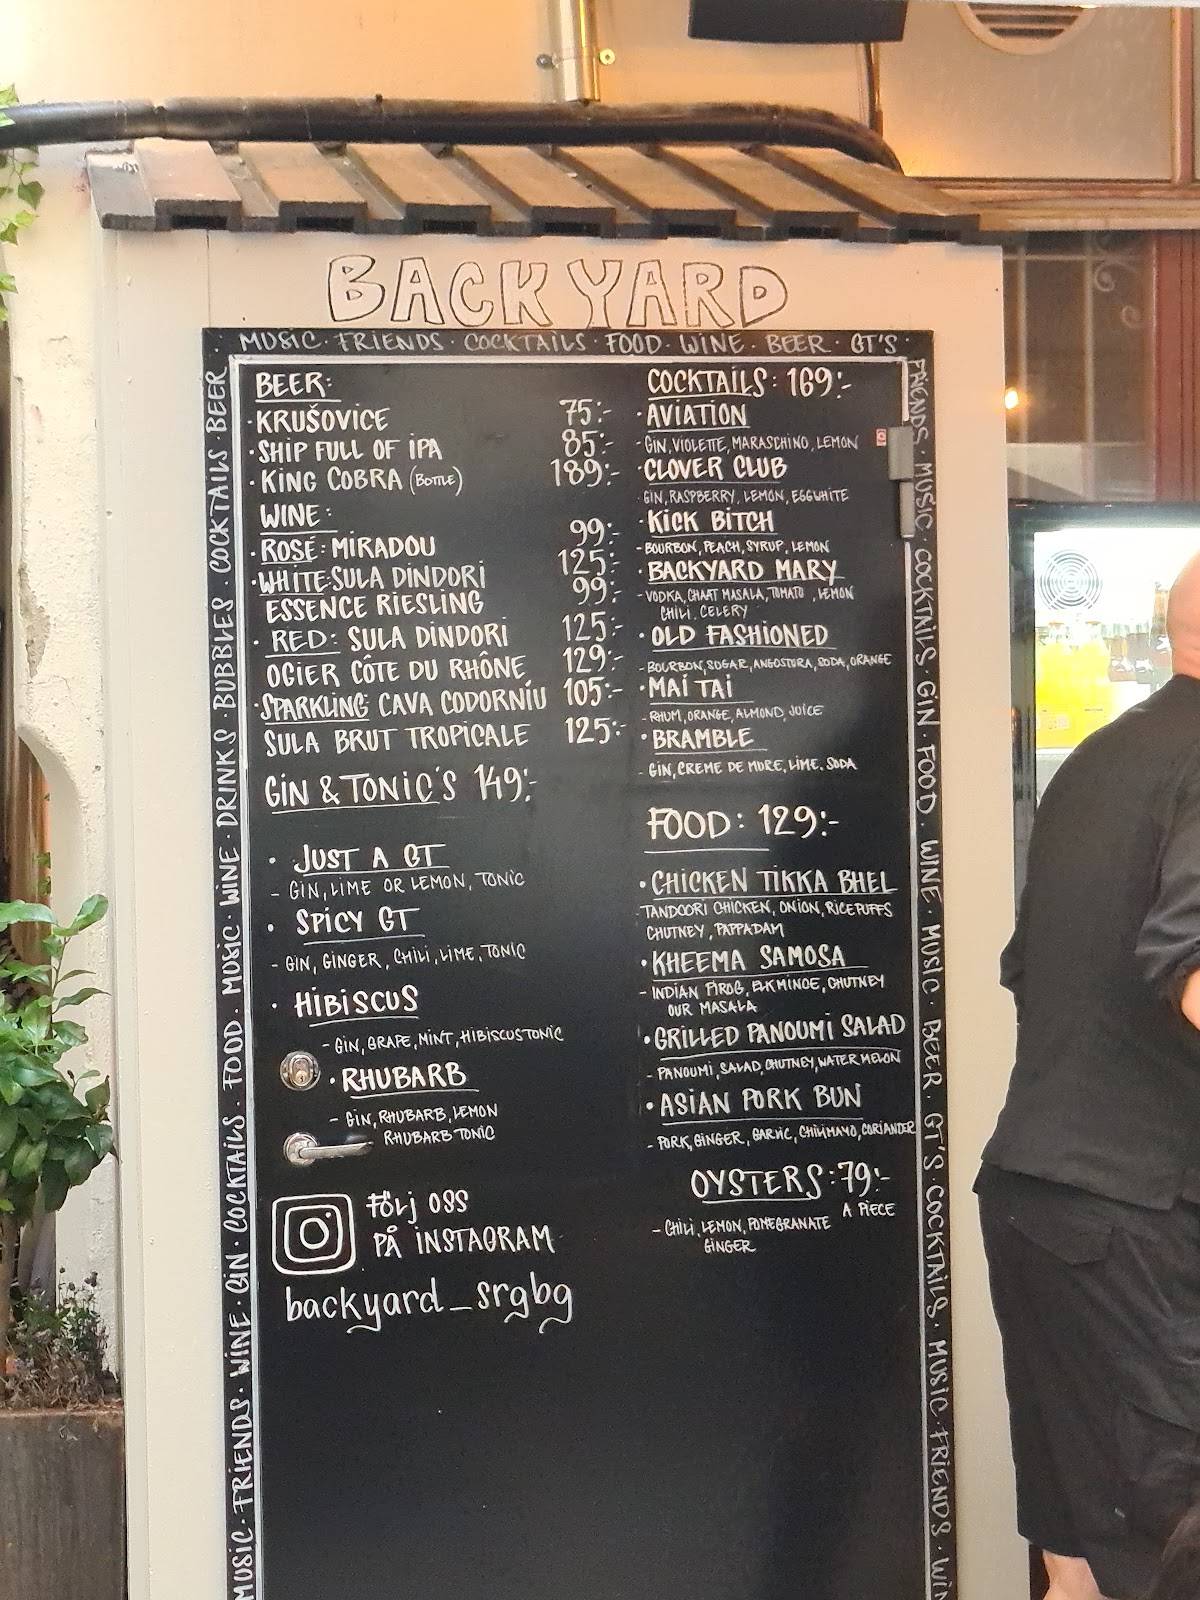 BACKYARD
MUSIC · FRIENDS · COCKTAILS · FOOD · WINE · BEER · GT'S ·
BEER:
· KRUŠOVICE 75:-
· SHIP FULL OF IPA 85:-
· KING COBRA (BOTTLE) 189:-
WINE:
· ROSÉ: MIRADOU 99:-
· WHITE: SULA DINDORI 125:-
ESSENCE RIESLING 99:-
· RED: SULA DINDORI 125:-
OGIER CÔTE DU RHÔNE 129:-
· SPARKLING: CAVA CODORNÍU 105:-
SULA BRUT TROPICALE 125:-
GIN & TONIC'S 149:-
· JUST A GT
- GIN, LIME OR LEMON, TONIC
· SPICY GT
- GIN, GINGER, CHILI, LIME, TONIC
· HIBISCUS
- GIN, GRAPE, MINT, HIBISCUSTONIC
· RHUBARB
- GIN, RHUBARB, LEMON
RHUBARB TONIC
FÖLJ OSS
PÅ INSTAGRAM
backyard_srgbg
COCKTAILS: 169:-
· AVIATION
- GIN, VIOLETTE, MARASCHINO, LEMON
· CLOVER CLUB
GIN, RASPBERRY, LEMON, EGGWHITE
· KICK BITCH
- BOURBON, PEACH, SYRUP, LEMON
· BACKYARD MARY
- VODKA, CHAAT MASALA, TOMATO, LEMON
CHILI, CELERY
· OLD FASHIONED
- BOURBON, SOGAR, ANGOSTURA, SODA, ORANGE
· MAI TAI
- RHUM, ORANGE, ALMOND, JUICE
· BRAMBLE
- GIN, CREME DE MURE, LIME. SODA
FOOD: 129:-
· CHICKEN TIKKA BHEL
TANDOORI CHICKEN, ONION, RICEPUFFS
CHUTNEY, PAPPADAM
· KHEEMA SAMOSA
- INDIAN PIROG, ELKMINCE, CHUTNEY
OUR MASALA
· GRILLED PANOUMI SALAD
- PANOUMI, SALAD, CHUTNEY, WATER MELON
· ASIAN PORK BUN
- PORK, GINGER, GARLIC, CHILIMAYO, CORIANDER
OYSTERS: 79:-
A PIECE
- CHILI, LEMON, POMEGRANATE
GINGER
MUSIC · FRIENDS · WINE · GIN · COCKTAILS · FOOD · MUSIC · WINE · DRINKS · BUBBLES · COCKTAILS · BEER
FRIENDS · MUSIC · COCKTAILS · GIN · FOOD · WINE · MUSIC · BEER · GT'S · COCKTAILS · MUSIC · FRIENDS · WIN